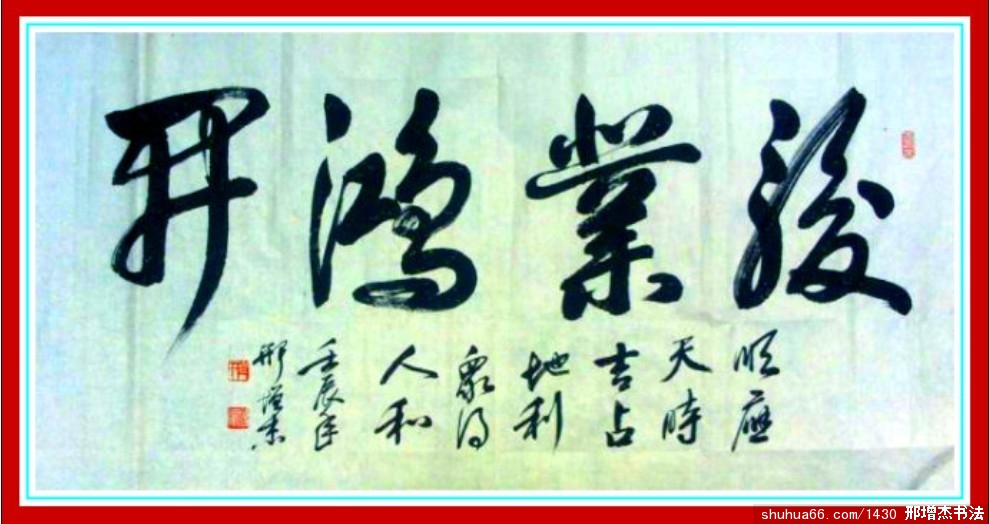 駿業鴻開
順應
天時
吉占
地利
衆得
人和
壬辰年
邢增杰
shuhua66.com/1430 邢增杰书法